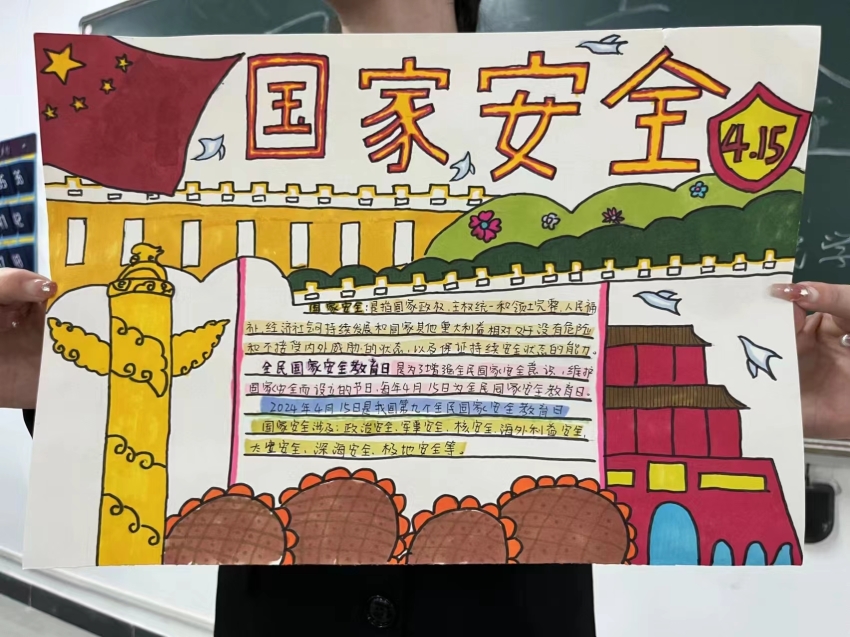 国家安全
4.15
国家安全:是指国家政权、主权统一和领土完整、人民福
祉、经济社会可持续发展和国家其他重大利益相对处于没有危险
和不受内外威胁的状态,以及保证持续安全状态的能力。
全民国家安全教育日是为了增强全民国家安全意识,维护
国家安全而设立的节日,每年4月15日为全民国家安全教育日。
2024年4月15日是我国第九个全民国家安全教育日
国家安全涉及:政治安全、军事安全、核安全、海外利益安全、
太空安全、深海安全、极地安全等。